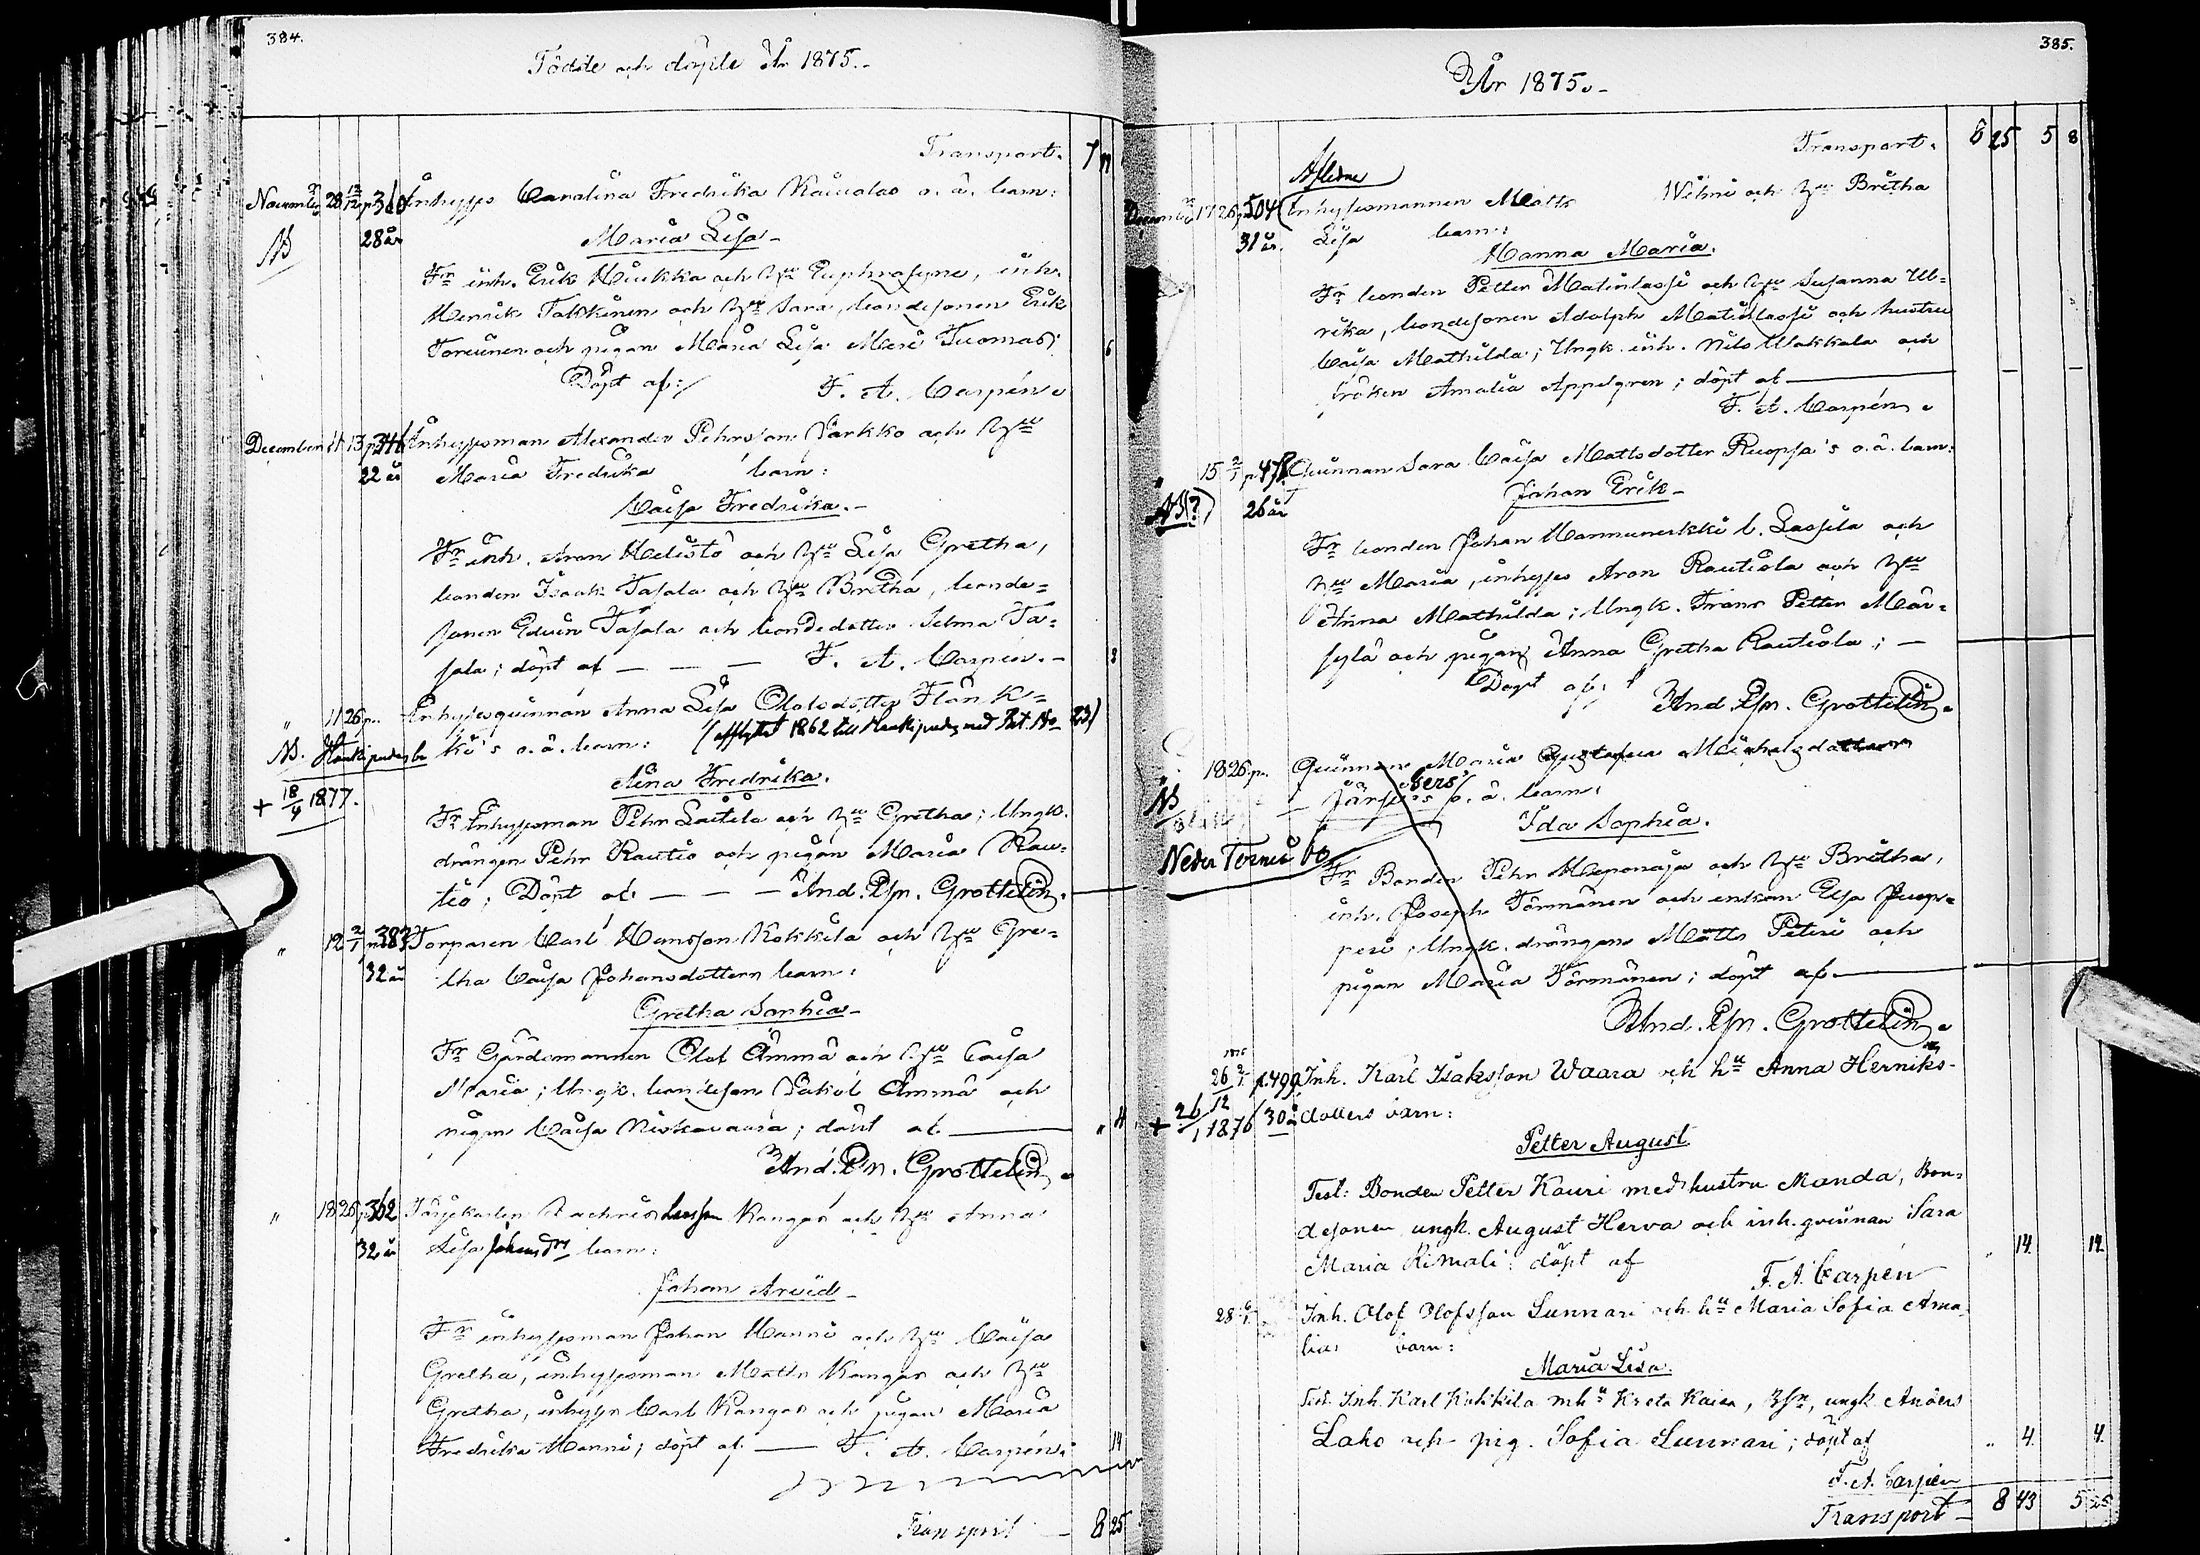 384.
Födde och döpte År 1875.-
Transport. 7
November 28 p 360 Inhyses Carolina Fredrika o. ä. barn:
NB 28 år
Maria Lisa-
Fr. inh. Erik och hu Euphrosyne, inh.
Henrik Takkinen och hu Sara, bondesonen Erik
och pigan Maria Lisa Tuomas;
Döpt af:/ F. A. Carpén. 6
December 11 13 p 346 Inhysesman Alexander Pehrsson Parkko och hu
22 år Maria Fredrika barn:
Caisa Fredrika.-
Fr. inh. Aron och hu Lisa Gretha,
bonden Isaak Tasala och hu Britha, bonde=
sonen Edvin Tasala och bondedotter Selma Ta=
sala; döpt af — — — F. A. Carpén.- 8
" 11 26 p. Inhysesqvinnan Anna Lisa Olofsdotter
NB. Haukipudas bo ki's o. ä. barn: (afflyttat 1862 till Haukipudas med Bet. No 23)
Aina Fredrika.
+ 18/4 1877.
Fr. Inhysesman Pehr Laitila och hu Gretha; Ungk.
drängen Pehr Rautio och pigan Maria Rau=
tio; Döpt af: — — — And. Pn. Grottelin.
" 12 2/1 p 383 Torparen Carl Hansson Kokkila och hu Gre=
32 år tha Caisa Johansdotters barn:
Gretha Sophia-
Fr. Gårdsmannen Olof Ämmä och hu Caisa
Maria; Ungk. bondeson Jakob Ämmä och
pigan Caisa Niskavaara; döpt af " 4
And. Pn. Grottelin.
" 18 26 p 362 Zachris Larsson Kangas och hu Anna
32 år Lisa Johansdtr barn:
Johan Arvid-
Fr. inhysesman Johan Hanni och hu Caisa
Gretha, inhysesman Matts Kangas och hu
Gretha, inhyses Carl Kangas och pigan Maria
Fredrika Hanni; döpt af — F. A. Carpén. 14
Transport — 8 25
385.
År 1875.-
Transport. 8 25 5 8
Afliden
December 17 26 p 504 Inhysesmannen Matts Wilmi och hu Britha
31 år. Lisa barn:
Hanna Maria.
Fr. bonden Petter Matinlassi och hu Susanna Ul=
rika, bondesonen Adolph Matinlassi och hustru
Caisa Mathilda; Ungk. inh. Nils Ulakkala och
fröken Amalia Appelgren; döpt af
F. A. Carpén.
" 15 2/1 p 478 Qvinnan Sara Caisa Mattsdotter Ruopsa's o. ä. barn:
NB?) 26 år
Johan Erik-
Fr. bonden Johan l. Lassila och
hu Maria, inhyses Aron Rautiola och hu
Anna Mathilda; Ungk. Frans Petter Mär=
sylä och pigan Anna Gretha Rautiola; —
Döpt af: And. Pn. Grottelin.
" 18 26 p. Qvinnan Maria Gustafva Michelsdotter
NB o. ä. barn:
Ida Sophia.
Neder Torneå bo
Fr. Bonden Pehr och hu Britha,
inh. Joseph Törmänen och enkan Elsa
Ungk. drängen Matts Peteri och
pigan Maria Törmänen; döpt af
And. Pn. Grottelin.
26/12 2/1 p.499 Inh. Karl Isaksson Waara och hu Anna Henriks-
+ 26/1 1876 30 å dotters barn:
Petter August
Test: Bonden Petter Kauri med hustru Manda, Bon=
desonen ungk. August Herva och inh. qvinnan Sara
Maria döpt af " 14. 14.
F. A. Carpén
28 6/1 Inh. Olof Olofsson Lunnari och hu Maria Sofia Ama=
lias barn:
Maria Lisa.
Test. Inh. Karl Kokkila m hu Kreta Kaisa, ungk. Anders
Laho och pig. Sofia Lunnari; döpt af " 4. 4.
F. A. Carpén
Transport — 8 43 5 25